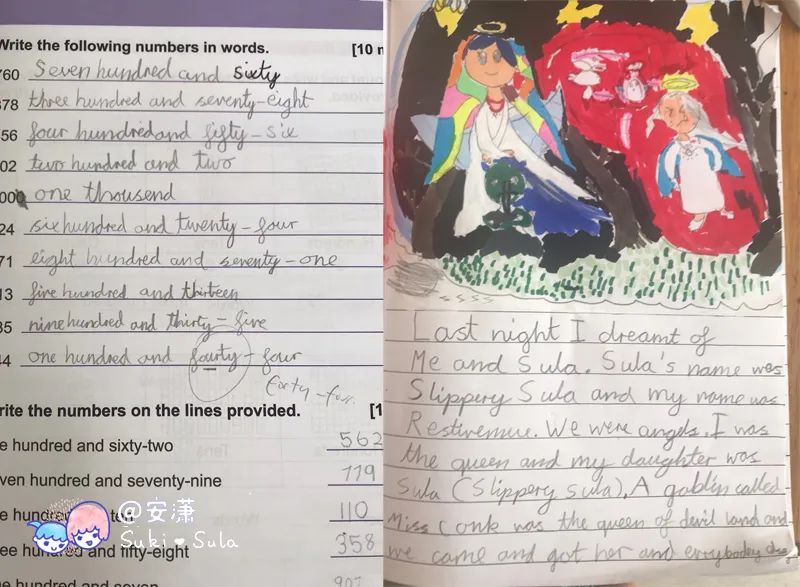 Write the following numbers in words. [10 m
760 Seven hundred and sixty
378 three hundred and seventy-eight
56 four hundred and fifty-six
02 two hundred and two
000 one thousend
24 six hundred and twenty-four
71 eight hundred and seventy-one
13 five hundred and thirteen
35 nine hundred and thirty-five
44 one hundred and fourty-four
forty-four
rite the numbers on the lines provided. [1
e hundred and sixty-two 562
ven hundred and seventy-nine 779
e hundred ten 110
ee hundred and fifty-eight 358
e hundred and seven 907
@安潇
Suki Sula
Last night I dreamt of
Me and Sula. Sula's name was
Slippery Sula and my name was
We were angels. I was
the queen and my daughter was
Sula (Slippery Sula). A goblin called
Miss Conk was the queen of devil land and
we came and got her and